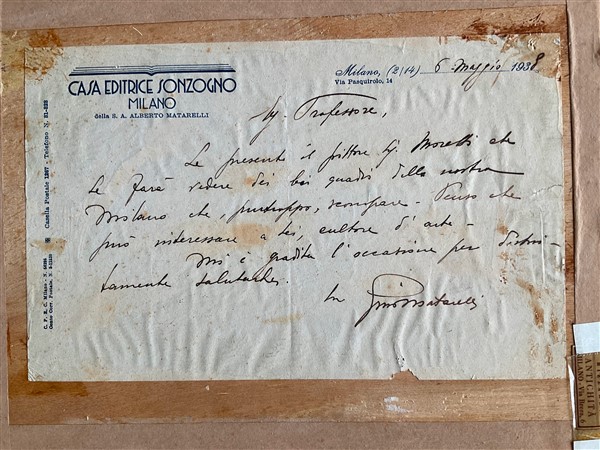 CASA EDITRICE SONZOGNO
MILANO
della S. A. ALBERTO MATARELLI
Milano, (2/14) 6 Maggio 1938
Via Pasquirolo, 14
Casella Postale 1267 - Telefono N. 81-828
C. P. E. C. Milano - N.
Conto Corr. Postale, N.
Sig. Professore,
Le presento il pittore Sig. Morelli che
Le farà vedere dei bei quadri della nostra
Milano che, purtroppo, scompare. Penso che
può interessare a Lei, cultore d'arte.
Mi è gradita l'occasione per distin-
tamente salutarLa.
Gino Matarelli
ANTICHITÀ
MILANO - Via